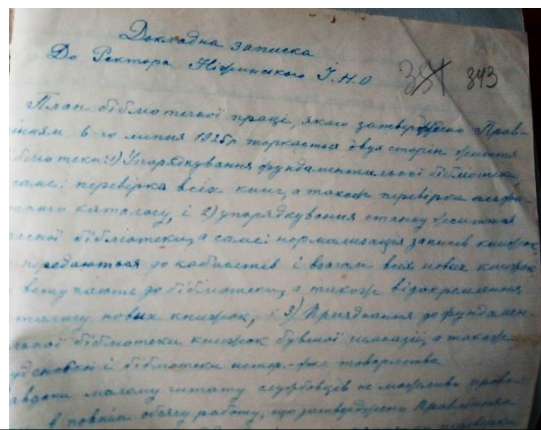 Докладна записка
До Ректора Ніжинського І.Н.О
351 343
План бібліотечної праці, якого затверджено Прав-
лінням 6-го липня 1925р торкається двух сторін життя
бібліотеки: 1) Упорядкування фундаментальної бібліотеки,
саме: перевірка всіх книг, а також перевірка
каталогу, і 2) упорядкування стану життя
бібліотеки, а саме: нормалізація записів книжок,
передаються до кабінетів і взагалі всіх нових книжок
до бібліотеки, а також відокремлення
каталогу нових книжок, і 3) Приєднання до фундамен-
тальної бібліотеки книжок бувшої гімназії, а також
і бібліотеки істор.-філ. товариства
малому штату службовців не можливо прове-
в повнім обсягу роботу, що затверджено Правлінням